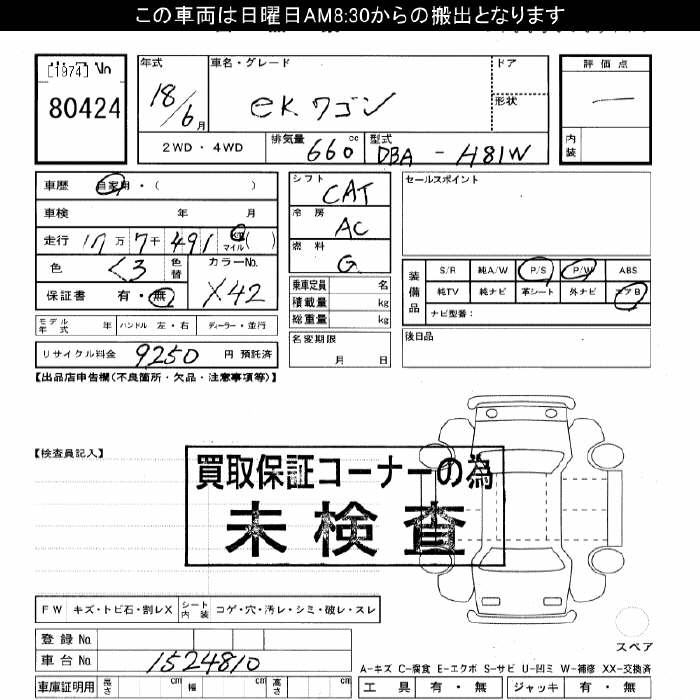 この車両は日曜日AM8:30からの搬出となります
[1974] No
80424
年式
18/6月
車名・グレード
eKワゴン
ドア
形状
評価点
—
内装
2WD・4WD
排気量 660 cc
型式 DBA - H81W
車歴 自家用・( )
車検 年 月
走行 17万7千491 km マイル( )
色 くろ 色替
カラーNo. X42
保証書 有・無
モデル年式 年 ハンドル 左・右 ディーラー・並行
リサイクル料金 9250 円 預託済
シフト CAT
冷房 AC
燃料 G
乗車定員 名
積載量 kg
総重量 kg
名変期限 月 日
セールスポイント
装備品
S/R 純A/W P/S P/W ABS
純TV 純ナビ 革シート 外ナビ エアB
ナビ型番:
後日品
【出品店申告欄(不良箇所・欠品・注意事項等)】
【検査員記入】
買取保証コーナーの為
未検査
FW キズ・トビ石・割レX シート内装 コゲ・穴・汚レ・シミ・破レ・スレ
登録No.
車台No. 1524810
車庫証明用 長さ cm 幅 cm 高さ cm
スペア
A-キズ C-腐食 E-エクボ S-サビ U-凹ミ W-補修 XX-交換済
工具 有・無 ジャッキ 有・無